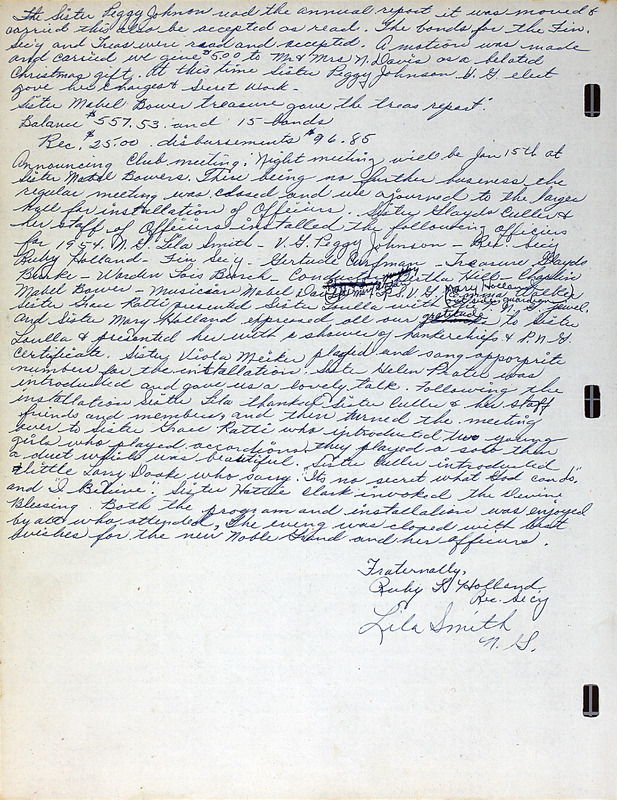 The Sister Peggy Johnson read the annual report it was moved &
carried this also be accepted as read. The bonds for the Fin.
Sec'y and Treas were read and accepted. A motion was made
and carried we give $5.00 to Mr & Mrs N. Davis as a belated
Christmas gift. At this time Sister Peggy Johnson V. G. elect
gave her Charge & Secret Work -
Sister Mabel Bower treasure gave the treas report.
Balance $557.53 and 15 bonds
Rec. $25.00 disbursements $96.85
Announcing Club meeting. Night meeting will be Jan 15th at
Sister Mabel Bowers. There being no further business the
regular meeting was closed and we ajourned to the large
hall for installation of Officers. Sister Gladys Culler &
her staff of Officers installed the following officers
for 1954. N. G. Lila Smith - V. G. Peggy Johnson - Rec. Sec'y
Ruby Holland - Fin Sec'y - Gertude - Treasure Gladys
- Warden Lois - Hill - Chaplin
Mabel Bower - Musician Mabel R.S.V.G. Mary Holland Emma Walker
Sister Grace Ratti presented Sister Louella with P. N. G. jewel.
And Sister Mary Holland expressed all our gratitude to Sister
Louella & presented her with a shower of hankerchiefs & P. N. G.
Certificate. Sister Viola Meiker played and sang opporprite
number for the installation. Sister Helen Prater was
introducted and gave us a lovely talk. Following the
installation Sister Lila thanked Sister Culler & her staff,
friends and members, and then turned the meeting
over to Sister Grace Ratti who introducted two young
girls who played accordions, they played a solo then
a duet which was beautiful. Sister Culler introducted
a little Larry Doake who sang "Its no secret what God can do,"
and "I Believe". Sister Hattie Clark invoked the Devine
Blessing. Both the program and installation was enjoyed
by all who attended. The eving was closed with best
wishes for the new Noble Grand and her officers.
Fraternally,
Ruby H Holland
Rec. Sec'y
Lila Smith
N. G.